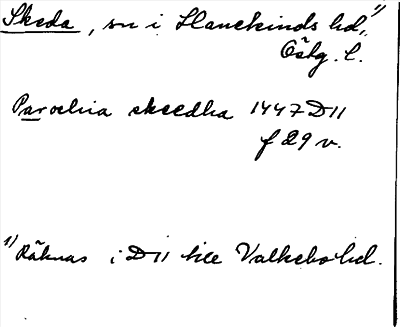 Skeda, sn i Hanekinds hd,¹⁾
Östg. l.
Paroehia skeedha 1447 D11
f 29 v.
¹⁾ Räknas i D11 till Valkebo hd.